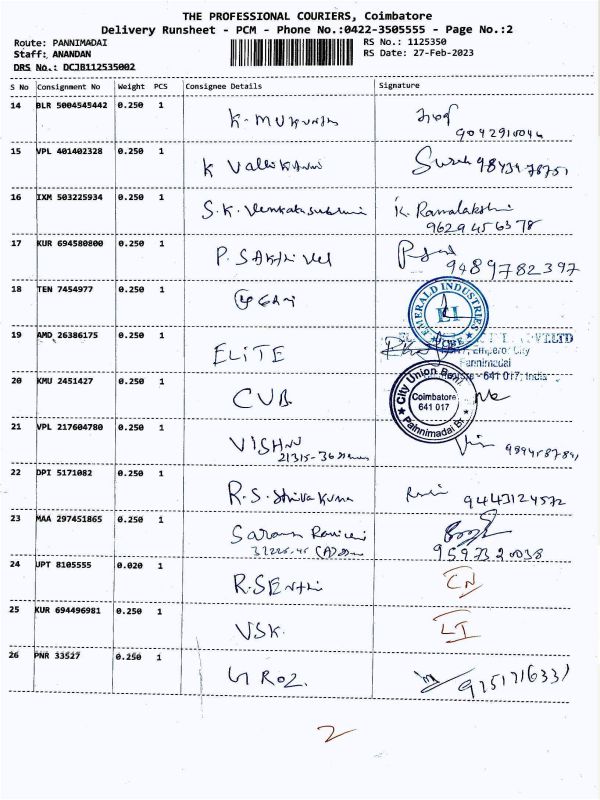 THE PROFESSIONAL COURIERS, Coimbatore
Delivery Runsheet - PCM - Phone No.:0422-3505555 - Page No.:2
Route: PANNIMADAI RS No.: 1125350
Staff: ANANDAN RS Date: 27-Feb-2023
DRS No.: DCJB112535002
S No Consignment No Weight PCS Consignee Details Signature
14 BLR 5004545442 0.250 1
K. MUKUNTH
15 VPL 401402328 0.250 1
K
16 IXM 503225934 0.250 1
S.K. K. Ramalakshmi
9629456378
17 KUR 694580800 0.250 1
P. SAKTHIVEL
9489782397
18 TEN 7454977 0.250 1
EMERALD INDUSTRIES
EI
CBE
19 AMD 26386175 0.250 1
ELITE
PVT.LTD
Emperor City
Pannimadai
641 017, India
20 KMU 2451427 0.250 1
CUB
City Union Bank
Coimbatore
641 017
Pannimadai Br.
21 VPL 217604780 0.250 1
VISHNU
22 DPI 5171082 0.250 1
R.S. Shiva Kumar 9443124572
23 MAA 297451865 0.250 1
9597320038
24 UPT 8105555 0.020 1
R. SENTHI CN
25 KUR 694496981 0.250 1
VSK. LI
26 PNR 33527 0.250 1
9751716331
2